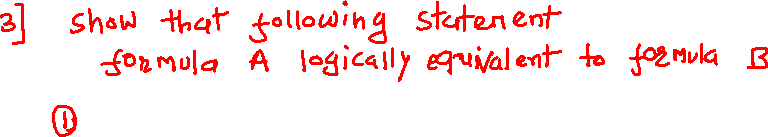 3] show that following statement
formula A logically equivalent to formula B
①